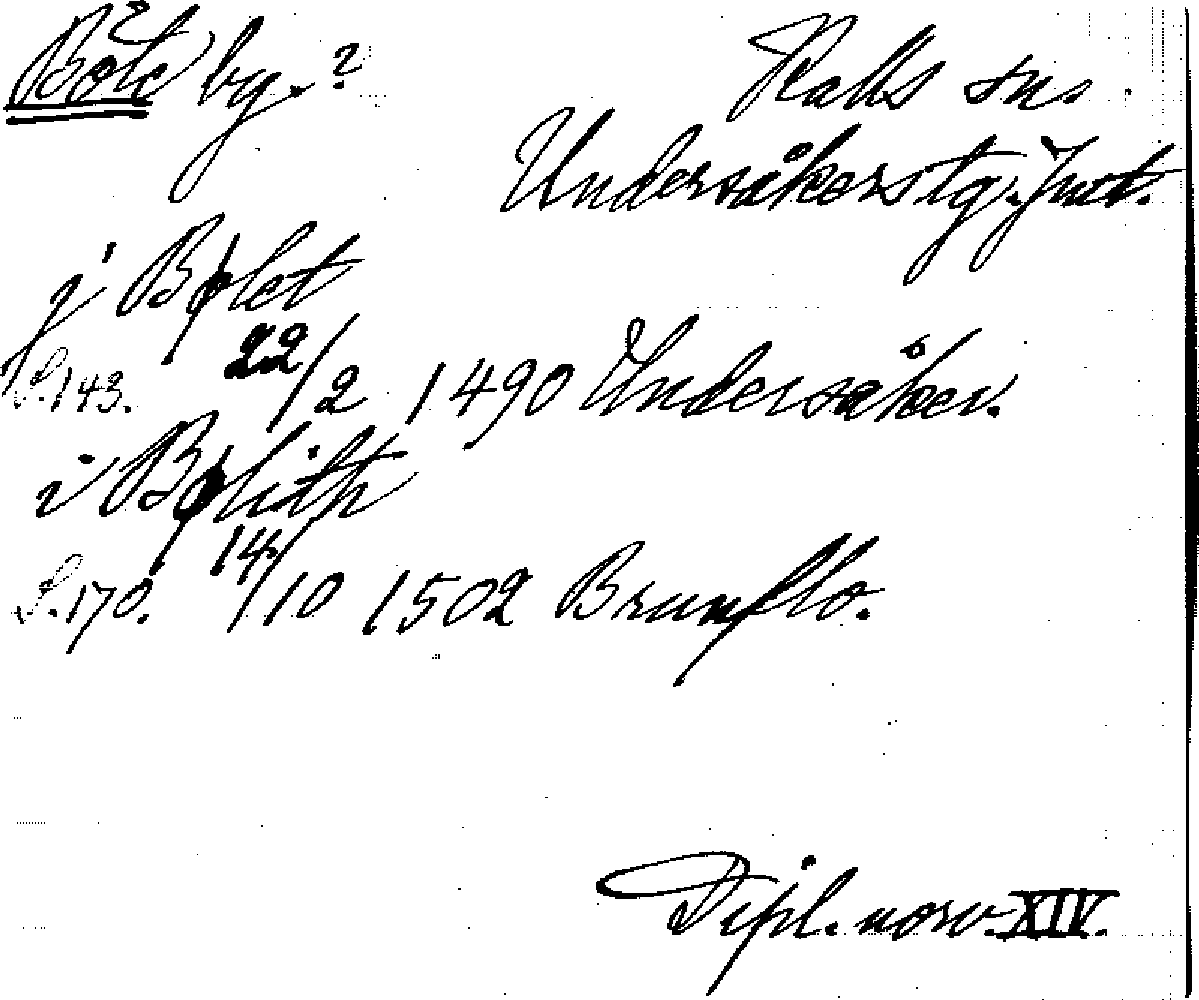 Böle by.?
Kalls sn.
Undersåkers tg. Jmt.
j Bølet
S. 143. 22/2 1490 Undersåker.
i Bølith
S. 170. 14/10 1502 Brunflo.
Dipl. norv. XIV.